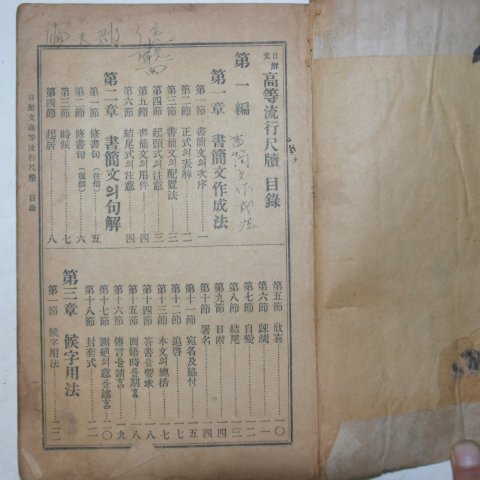 日鮮文 高等流行尺牘 目錄
第一編
第一章 書簡文作成法
第一節 書簡文의次序……一
第二節 正式의表解……二
第三節 書簡文의配置法……二
第四節 起頭式의注意……三
第五節 書簡文의用件……四
第六節 結尾式의注意……四
第二章 書簡文의句解
第一節 修書句(往信)……五
第二節 修書句(復信)……六
第三節 時候……七
第四節 起居……八
第五節 欣喜……一〇
第六節 疎濶……一一
第七節 自愛……一二
第八節 結尾……一三
第九節 日附……一四
第十節 署名……一四
第十一節 宛名及脇付……一五
第十二節 追啓……一七
第十三節 本文의總括……一七
第十四節 答書를要求……一八
第十五節 面語時를期言……一八
第十六節 傳言을請言……一九
第十七節 謝絕의意를述言……二〇
第十八節 封套式……二一
第三章 候字用法
第一節 候字用法……二二
日鮮文高等流行尺牘 目錄
書簡文作成法